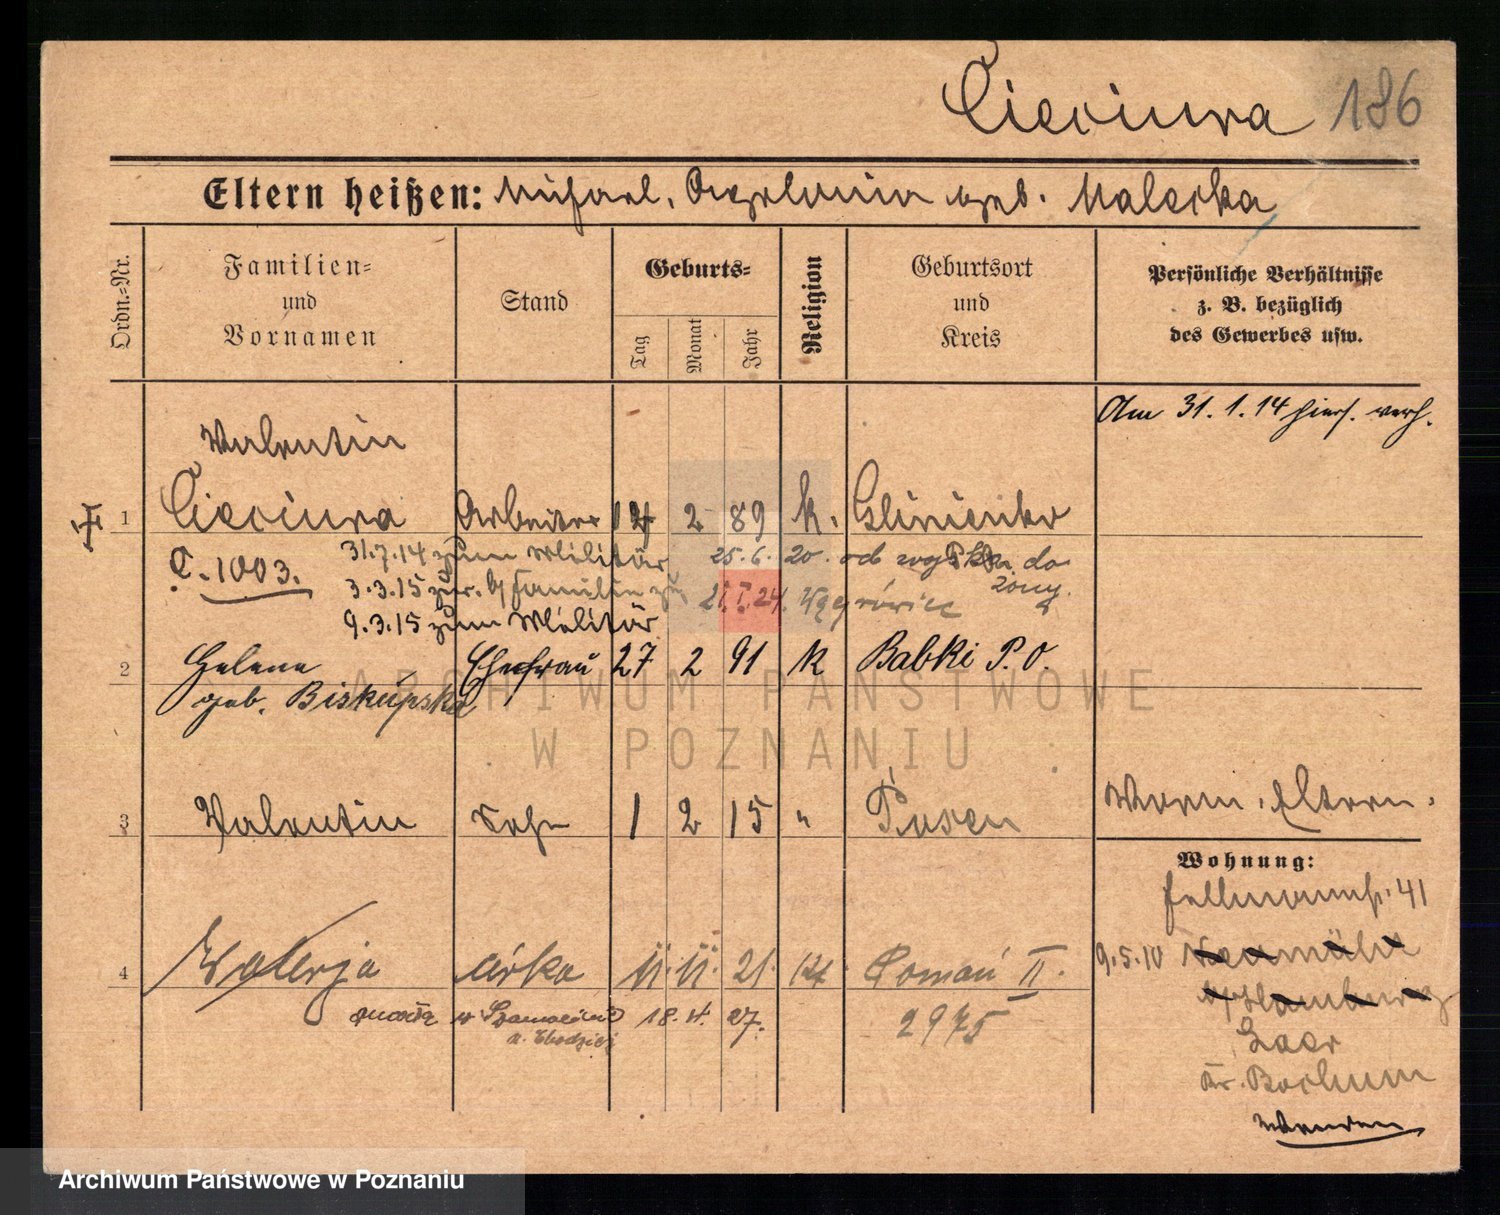 Cieciura 186
Eltern heißen: Michael, Apolonia geb. Malecka
Ordn.-Nr.
Familien-
und
Vornamen
Stand
Geburts-
Tag
Monat
Jahr
Religion
Geburtsort
und
Kreis
Persönliche Verhältnisse
z. B. bezüglich
des Gewerbes usw.
Am 31. 1. 14 hies. verh.
Valentin
1 Cieciura Arbeiter 14 2 89 k. Glinienko
C. 1003.
31.7.14 zum Militär
25. 6. 20. od do
3.3.15 zur. Familie
żony.
21. I. 24.
9.3.15 zum Militär
2 Helene Ehefrau 27 2 91 k Babki P. O.
geb. Biskupska
3 Valentin Sohn 1 2 15 " Posen
Vorm. Eltern.
Wohnung:
41
4 Walerja córka 11. 11. 21. kt. Poznań II.
w 18. 4. 27.
2975
9.5.10
Laer
Kr. Bochum
ARCHIWUM PAŃSTWOWE
W POZNANIU
Archiwum Państwowe w Poznaniu